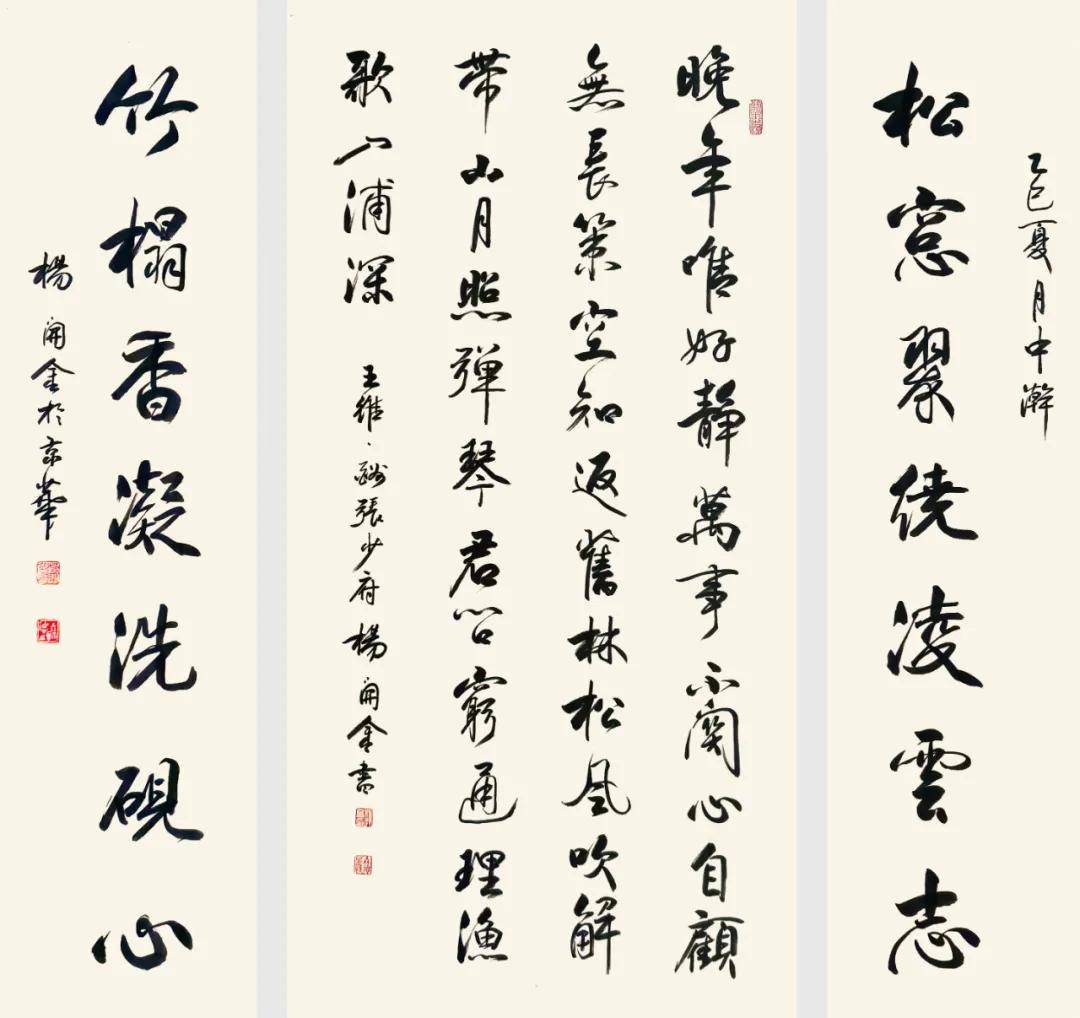 乙巳夏月中澣
松窓翠繞凌雲志
晚年唯好靜萬事不關心自顧
無長策空知返舊林松風吹解
帶山月照彈琴君問窮通理漁
歌入浦深 王維·酬張少府 楊開金書
竹榻香凝洗硯心
楊開金於京華